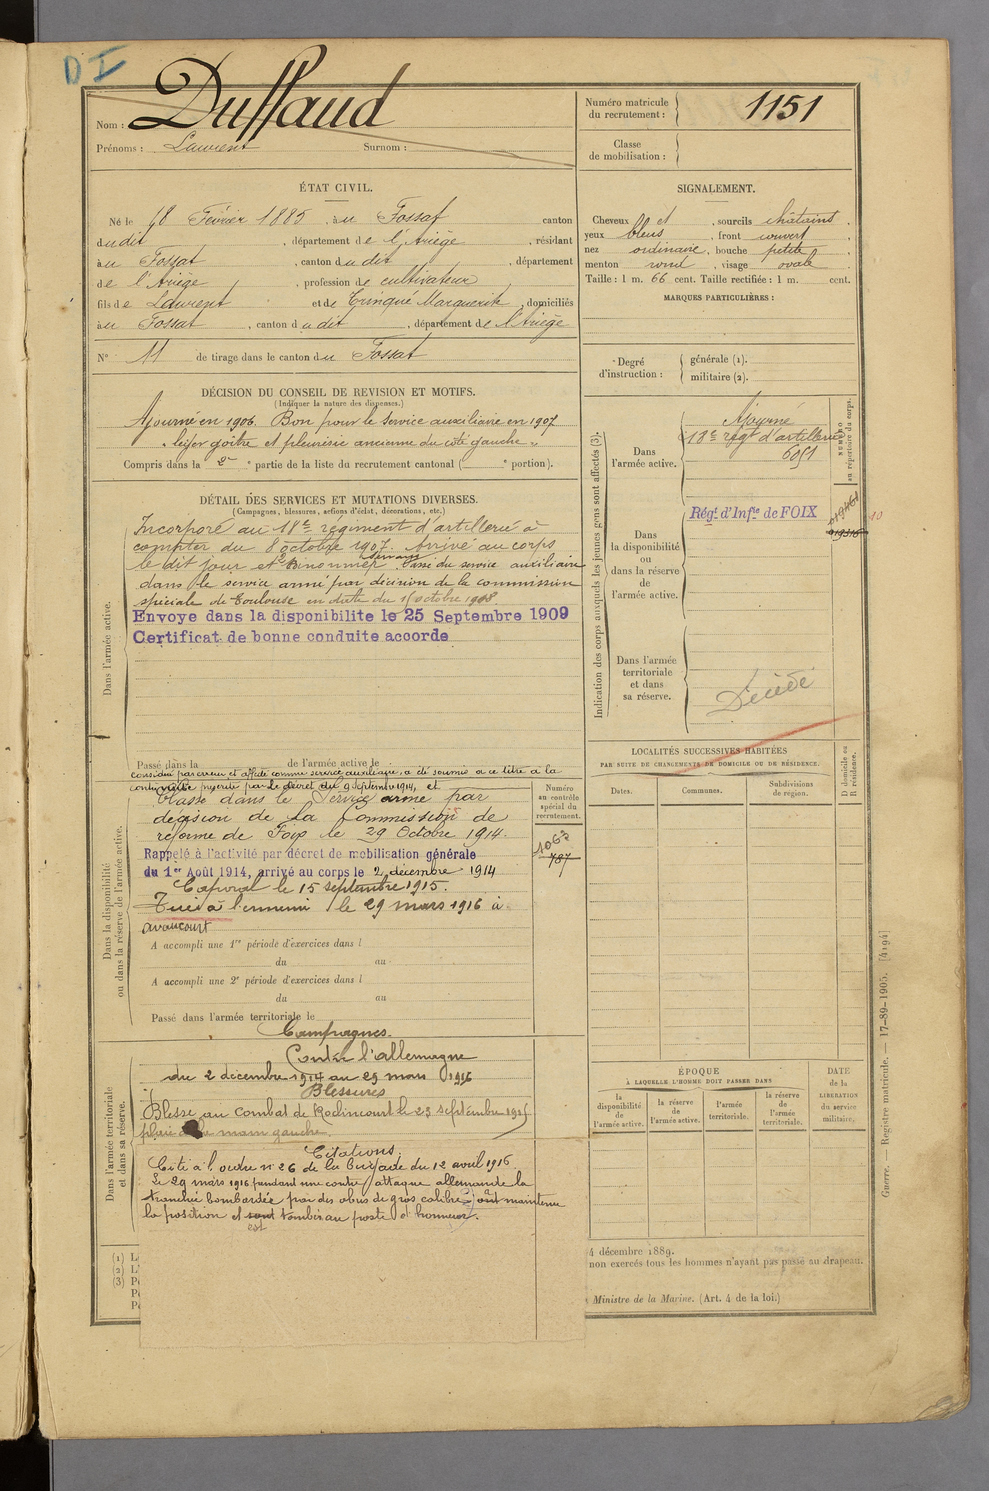 D I
Nom : Duffaud
Prénoms : Laurent Surnom :
Numéro matricule du recrutement : 1151
Classe de mobilisation :
ÉTAT CIVIL.
Né le 18 Février 1885, à u Fossat canton
d udit, département de l'Ariège, résidant
à u Fossat, canton d udit, département
de l'Ariège, profession de cultivateur
fils de Laurent et de Trinqué Marguerite, domiciliés
à u Fossat, canton d udit, département de l'Ariège
N° 11 de tirage dans le canton d u Fossat
SIGNALEMENT.
Cheveux et, sourcils châtains.
yeux bleus, front couvert,
nez ordinaire, bouche petite,
menton rond, visage ovale.
Taille : 1 m. 66 cent. Taille rectifiée : 1 m. cent.
MARQUES PARTICULIÈRES :
Degré d'instruction : générale (1).
militaire (2).
DÉCISION DU CONSEIL DE REVISION ET MOTIFS.
(Indiquer la nature des dispenses.)
Ajourné en 1906. Bon pour le service auxiliaire en 1907
" léger goître et pleurésie ancienne du côté gauche "
Compris dans la 2e partie de la liste du recrutement cantonal ( e portion).
DÉTAIL DES SERVICES ET MUTATIONS DIVERSES.
(Campagnes, blessures, actions d'éclat, décorations, etc.)
Dans l'armée active.
Incorporé au 18e régiment d'artillerie à
compter du 8 octobre 1907. Arrivé au corps
le dit jour et 2e canonnier servant Passé du service auxiliaire
dans le service armé par décision de la commission
spéciale de Toulouse en date du octobre 1908.
Envoye dans la disponibilite le 25 Septembre 1909
Certificat de bonne conduite accorde
Passé dans la de l'armée active le
Dans la disponibilité ou dans la réserve de l'armée active.
considéré par erreur et affecté comme service auxiliaire, a été soumis à ce titre à la
contre visite prescrite par le décret du 9 septembre 1914, et
Classé dans le Service armé par
décision de la Commission de
réforme de Foix le 29 Octobre 1914.
Rappelé à l'activité par décret de mobilisation générale
du 1er Août 1914, arrivé au corps le 2 décembre 1914
Caporal le 15 septembre 1915.
Tué à l'ennemi le 29 mars 1916 à
avaucourt
A accompli une 1re période d'exercices dans l
du au
A accompli une 2e période d'exercices dans l
du au
Passé dans l'armée territoriale le
Numéro au contrôle spécial du recrutement.
1063
787
Dans l'armée territoriale et dans sa réserve.
Campagnes.
Contre l'allemagne
du 2 décembre 1914 au 29 mars 1916
Blessures
Blessé au combat de Roclincourt le 25 septembre 1915
plaie de la main gauche.
Citations.
Cité à l'ordre n° 26 de la brigade du 12 avril 1916
Le 29 mars 1916 pendant une contre attaque allemande la
tranchée bombardée par des obus de gros calibre ont maintenu
la position et sont tombés au poste d'honneur.
est
Indication des corps auxquels les jeunes gens sont affectés (3).
Dans l'armée active.
Ajourné
18e régt d'artillerie
6051
NUMÉRO au répertoire du corps.
Dans la disponibilité ou dans la réserve de l'armée active.
Régt. d'Infie de FOIX
Dans l'armée territoriale et dans sa réserve.
Décédé
LOCALITÉS SUCCESSIVES HABITÉES
PAR SUITE DE CHANGEMENTS DE DOMICILE OU DE RÉSIDENCE.
Dates. Communes. Subdivisions de région. D domicile ou R résidence.
ÉPOQUE
À LAQUELLE L'HOMME DOIT PASSER DANS
la disponibilité de l'armée active.
la réserve de l'armée active.
l'armée territoriale.
la réserve de l'armée territoriale.
DATE de la LIBÉRATION du service militaire.
(1) L
(2) L'
(3) P
4 décembre 1889.
non exercés tous les hommes n'ayant pas passé au drapeau.
Ministre de la Marine. (Art. 4 de la loi.)
Guerre. — Registre matricule. — 17-89-1905. [4194]